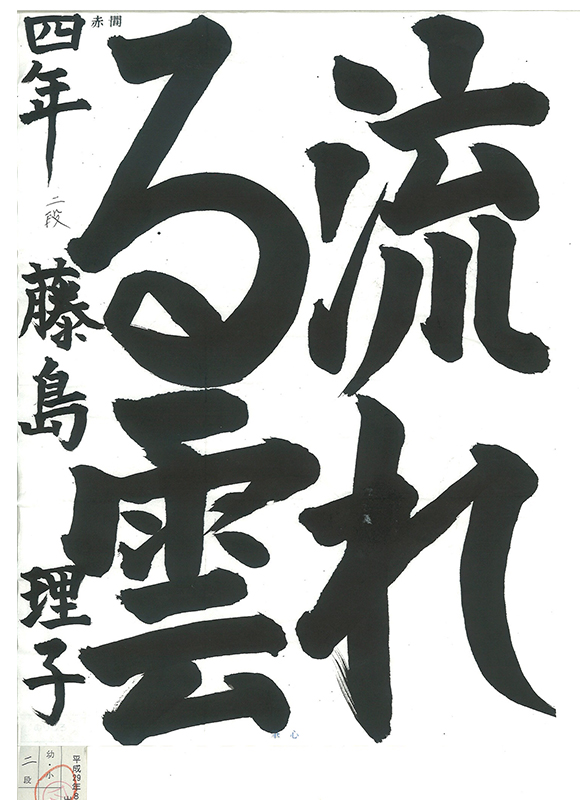 流れ
る雲
赤間
四年 二段 藤島 理子
心
平成29年8
幼・小
二段